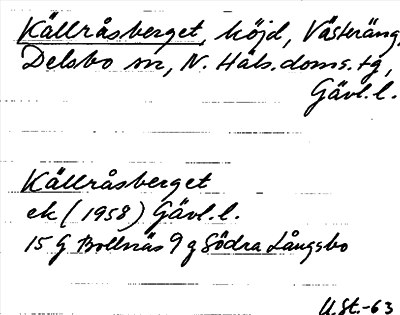 Källråsberget, höjd, Västeräng,
Delsbo sn, N. Häls.doms.tg,
Gävl.l.
Källråsberget
ek (1958) Gävl.l.
15 G Bollnäs 9 g Södra Långsbo
U.St.-63